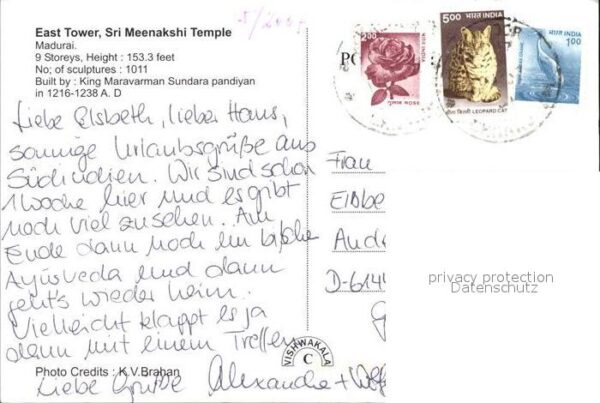 East Tower, Sri Meenakshi Temple
Madurai.
9 Storeys, Height : 153.3 feet
No; of sculptures : 1011
Built by : King Maravarman Sundara pandiyan
in 1216-1238 A. D
Liebe Elsbeth, lieber Hans,
sonnige Urlaubsgrüße aus
Südindien. Wir sind schon
1 Woche hier und es gibt
noch viel zu sehen. Am
Ende dann noch ein bißche
Ayurveda und dann
geht's wieder heim.
Vielleicht klappt es ja
dann mit einem Treffen
Liebe Grüße Alexandra +
Photo Credits : K.V.Braban
VISHWAKALA
C
INDIA
ROSE
5.00
भारत INDIA
LEOPARD CAT
भारत INDIA
1.00
Frau
D-614
privacy protection
Datenschutz